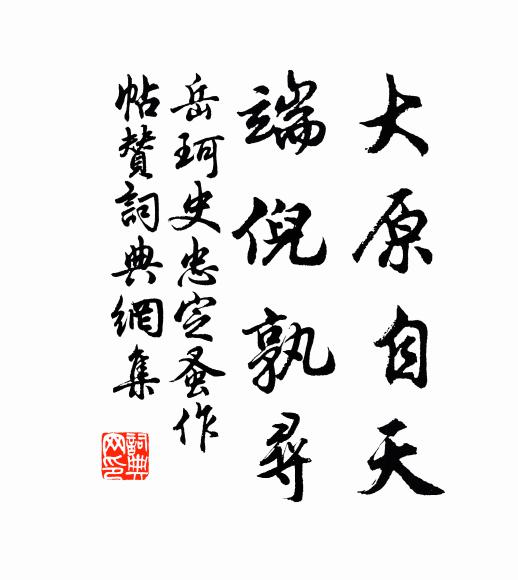 大原自天
端倪孰尋
岳珂史忠定蚤作
帖贊詞典網集
詞典網印